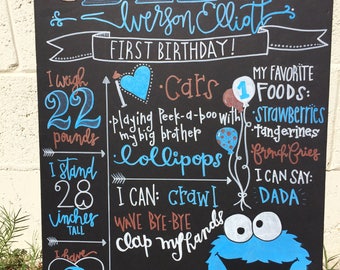 Iverson Elliott
FIRST BIRTHDAY!
I weigh
22
pounds
I stand
28
inches
TALL
I have
I
cars
playing peek-a-boo with
my big brother
lollipops
I CAN: crawl
WAVE BYE-BYE
clap my hands
1
MY FAVORITE
FOODS:
strawberries
tangerines
french fries
I CAN SAY:
DADA